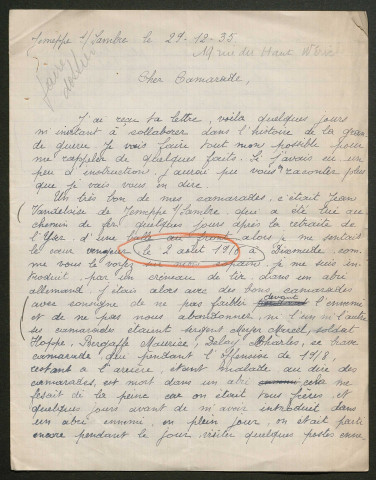 Jemeppe s/Sambre le 29-12-35
11 rue du Haut
faire
Cher Camarade,
J'ai reçu ta lettre, voila quelques jours
m'invitant à collaborer dans l'histoire de la gran
de guerre. Je vais faire tout mon possible pour
me rappeler de quelques faits. Si j'avais eu un
peu d'instruction j'aurais pu vous raconter plus
que je vais vous en dire.
Un très bon de mes camarades, c'était Jean
Vandeloise de Jemeppe s/Sambre, qui a été tué au
chemin de fer quelques jours après la retraite de
l'Yser d'une balle au front alors a me sentant
le cœur vengeur le 2 août 1918 à Dixmude, com-
me vous le voyez je me suis in-
troduit par un créneau de tir, dans un abri
allemand. J'étais alors avec des bons camarades
avec consigne de ne pas faiblir devant l'ennemi
et de ne pas nous abandonner, ni l'un ni l'autre
ses camarades étaient sergent Meyer Marcel, soldat
Hoppe, Burgaffe Maurice, Delay Charles, ce brave
camarade que pendant l'offensive de 1918,
restant a l'arrière, étant malade au dire des
camarades, est mort dans un abri cela me
fesait de la peine car on était tous frères et
quelques jours avant de m'avoir introduit dans
un abri ennemi, en plein jour, on était parti
encore pendant le jour, visiter quelques postes